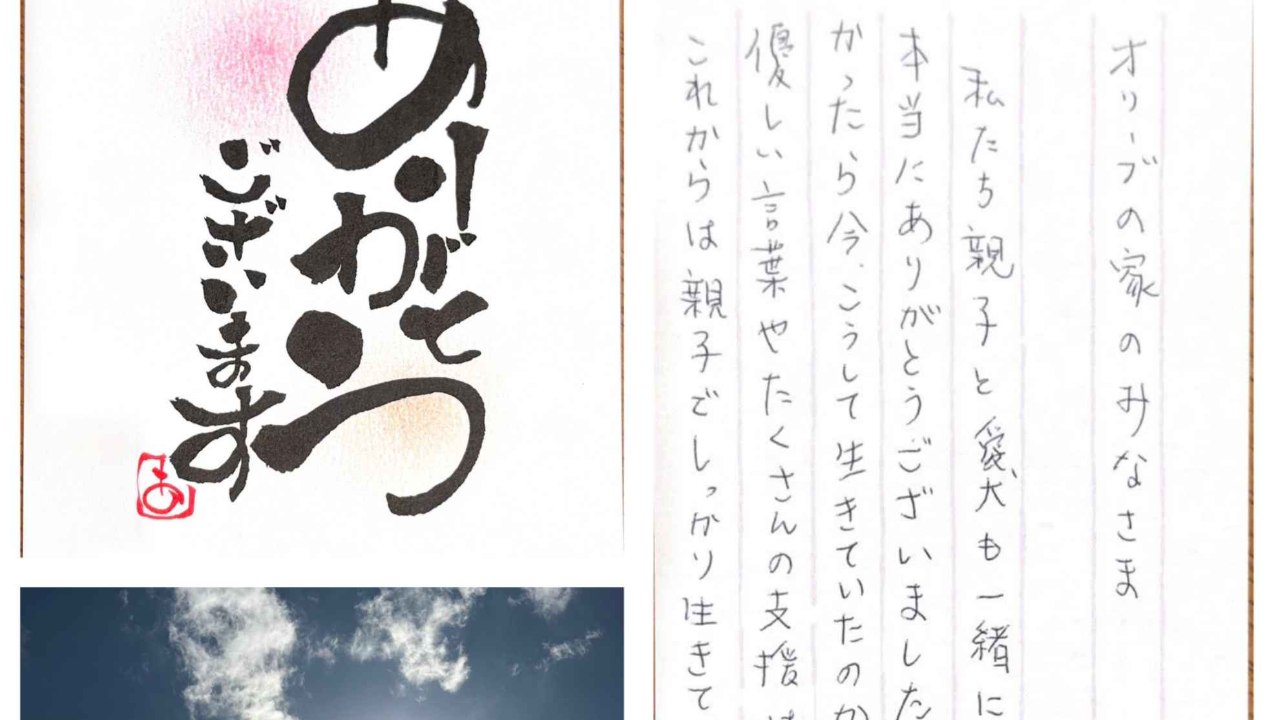 ありがとう
ございます
オリーブの家のみなさま
私たち親子と愛犬も一緒に
本当にありがとうございました
かったら今、こうして生きていたのか
優しい言葉やたくさんの支援は
これからは親子でしっかり生きて